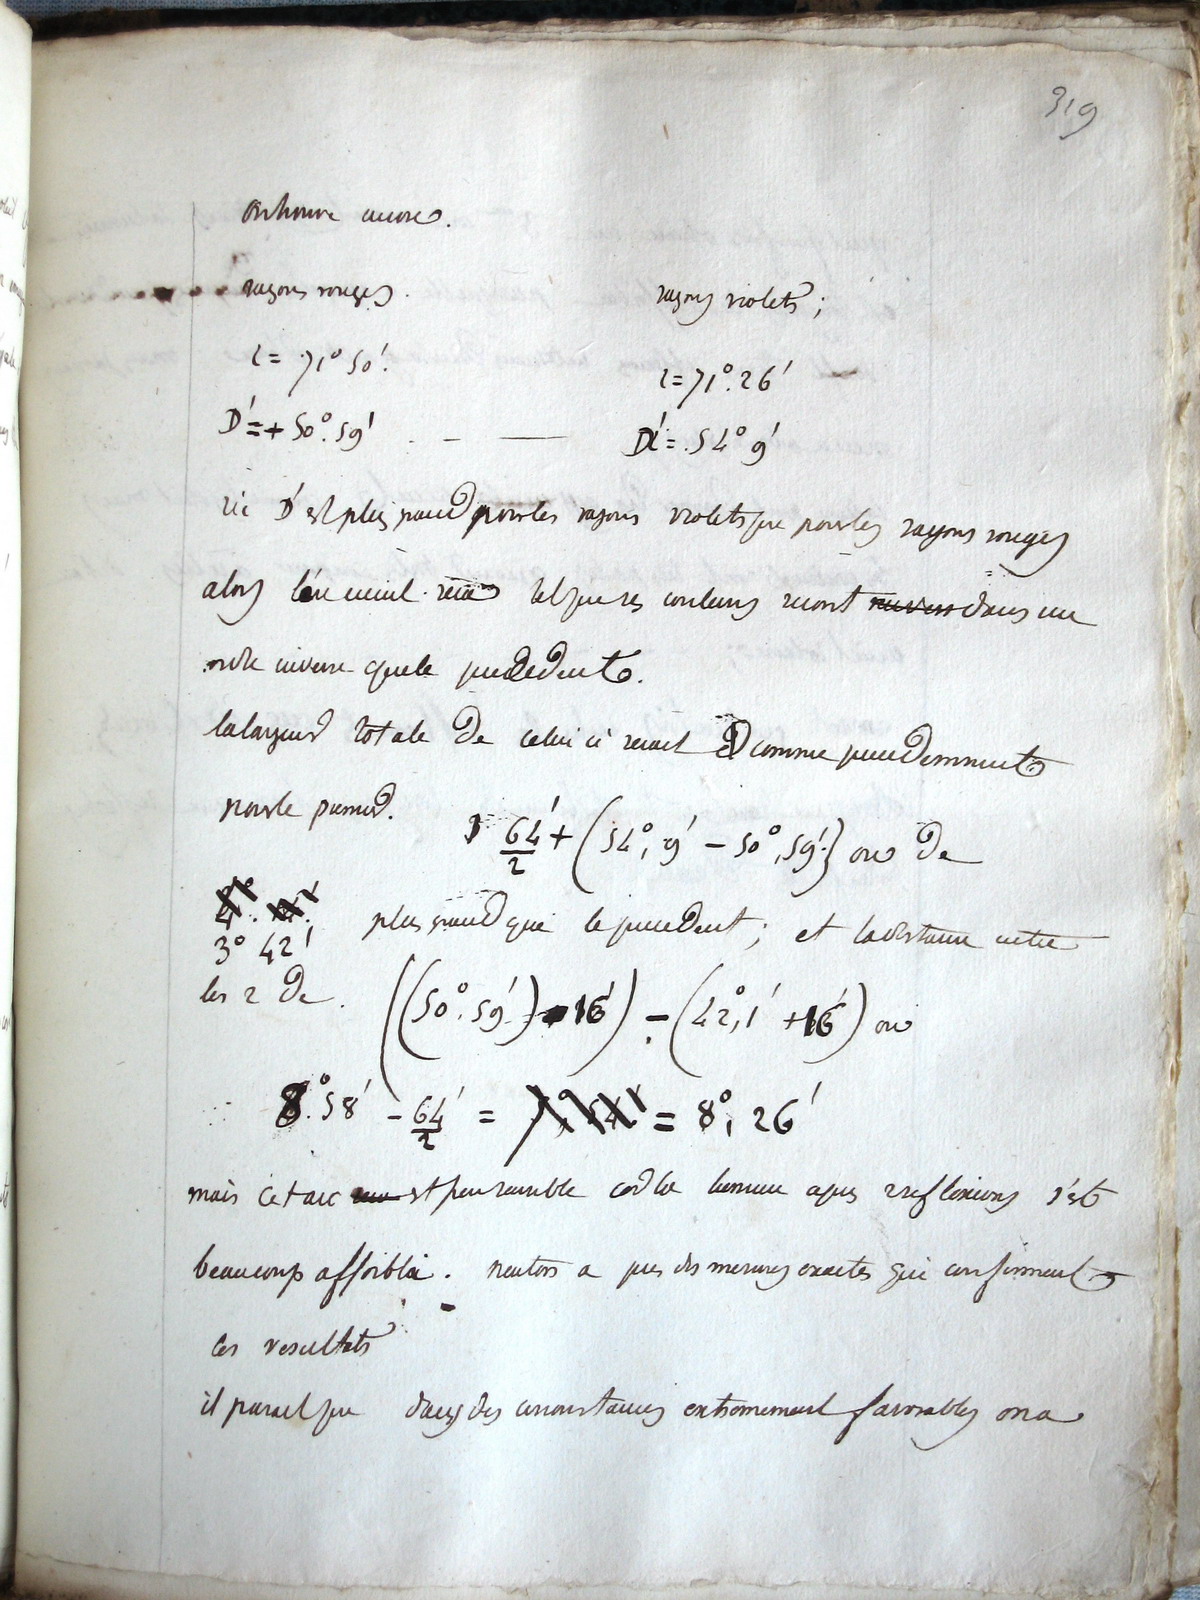 319
on trouve encore.
rayons rouges. rayons violets;
i = 71° 50'. i = 71°. 26'
D' = + 50°. 59' . - — D' = . 54° 9'
ici D' est plus grand pour les rayons violets que pour les rayons rouges
alors l'arc en ciel sera tel que ses couleurs seront dans un
ordre inverse que le precedent.
la largeur totale de celui ci serait comme precedemment
pour le premier. 64'/2 + (54°, 9' - 50°, 59') ou de
3° 42' plus grand que le precedent; et la distance entre
les 2 de. ((50°. 59') - 16') - (42°, 1' + 16') ou
8°. 58' - 64'/2 = = 8°, 26'
mais cet arc est peu sensible car la lumiere apres 2 reflexions s'est
beaucoup affoiblie. neuton a pris des mesures exactes qui confirment
ces resultats
il parait que dans des circonstances extremement favorables on a